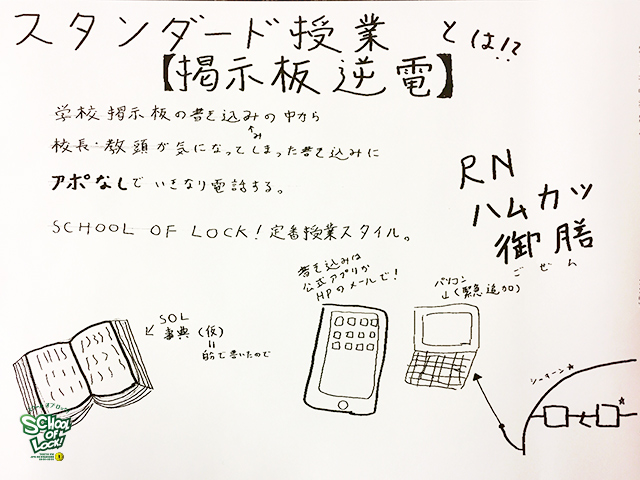 スタンダード授業 とは!?
【掲示板逆電】
学校掲示板の書き込みの中から
み
校長・教頭が気になってしまった書き込みに
アポなしでいきなり電話する。
SCHOOL OF LOCK! 定番授業スタイル。
RN
ハムカツ
御膳
ごぜん
SOL
事典(仮)
書き込みは
公式アプリか
HPのメールで!
パソコン
(緊急追加)
シーサーン☆
SCHOOL
OF
LOCK!